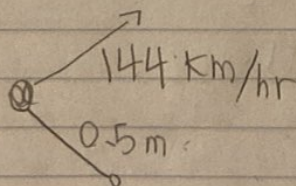 144 km/hr
0.5m